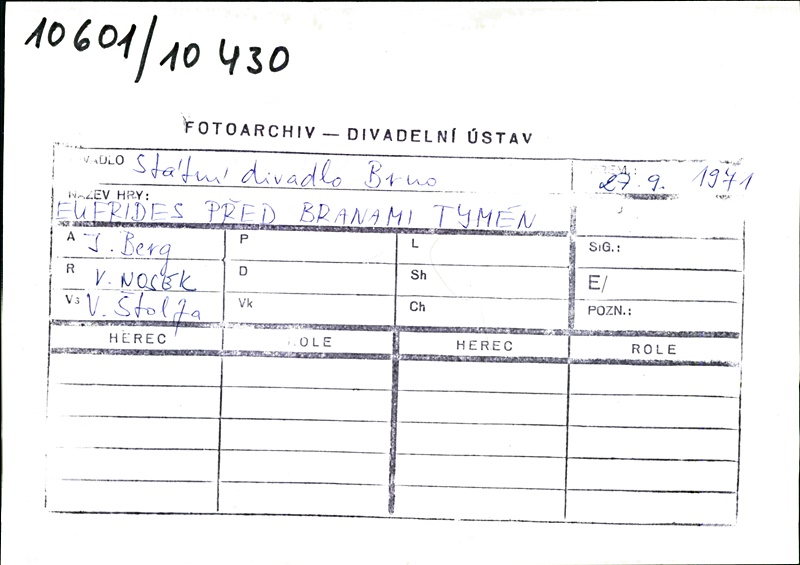 10601/10 430
FOTOARCHIV — DIVADELNÍ ÚSTAV
DIVADLO Státní divadlo Brno
27. 9. 1971
NÁZEV HRY:
EUFRIDES PŘED BRANAMI TYMÉN
A J. Berg P L SIG.:
R V. NOSEK D Sh E/
Vs V. Štolfa Vk Ch POZN.:
HEREC ROLE HEREC ROLE